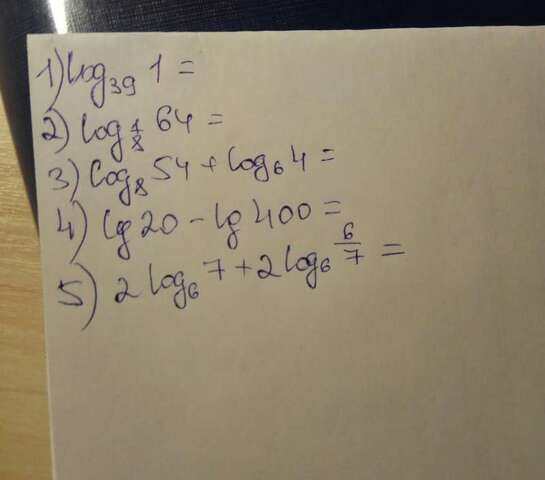 1) log₃₉ 1 =
2) log_{1/8} 64 =
3) log₈ 54 + log₆ 4 =
4) lg 20 - lg 400 =
5) 2 log₆ 7 + 2 log₆ 6/7 =